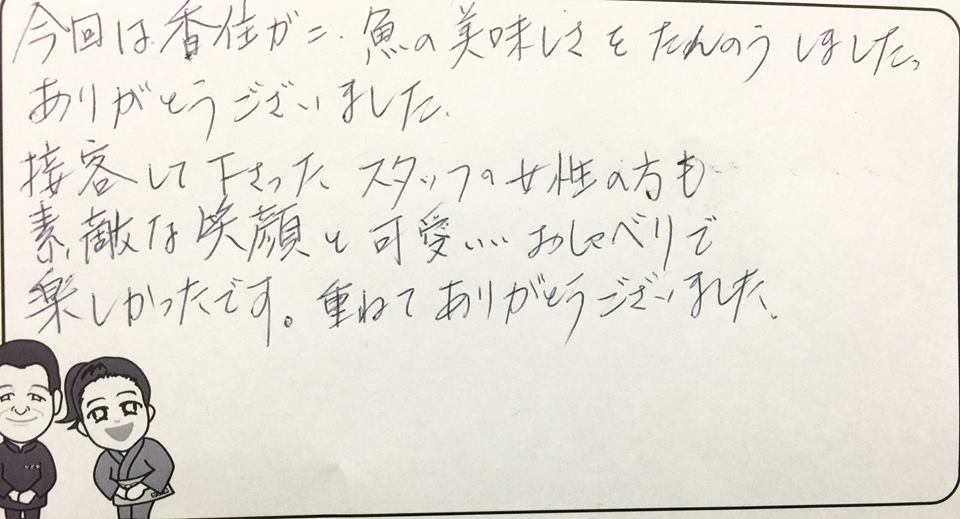 今回は香住ガニ、魚の美味しさをたんのうしました。
ありがとうございました。
接客して下さった、スタッフの女性の方も
素敵な笑顔と可愛いいおしゃべりで
楽しかったです。重ねてありがとうございました。